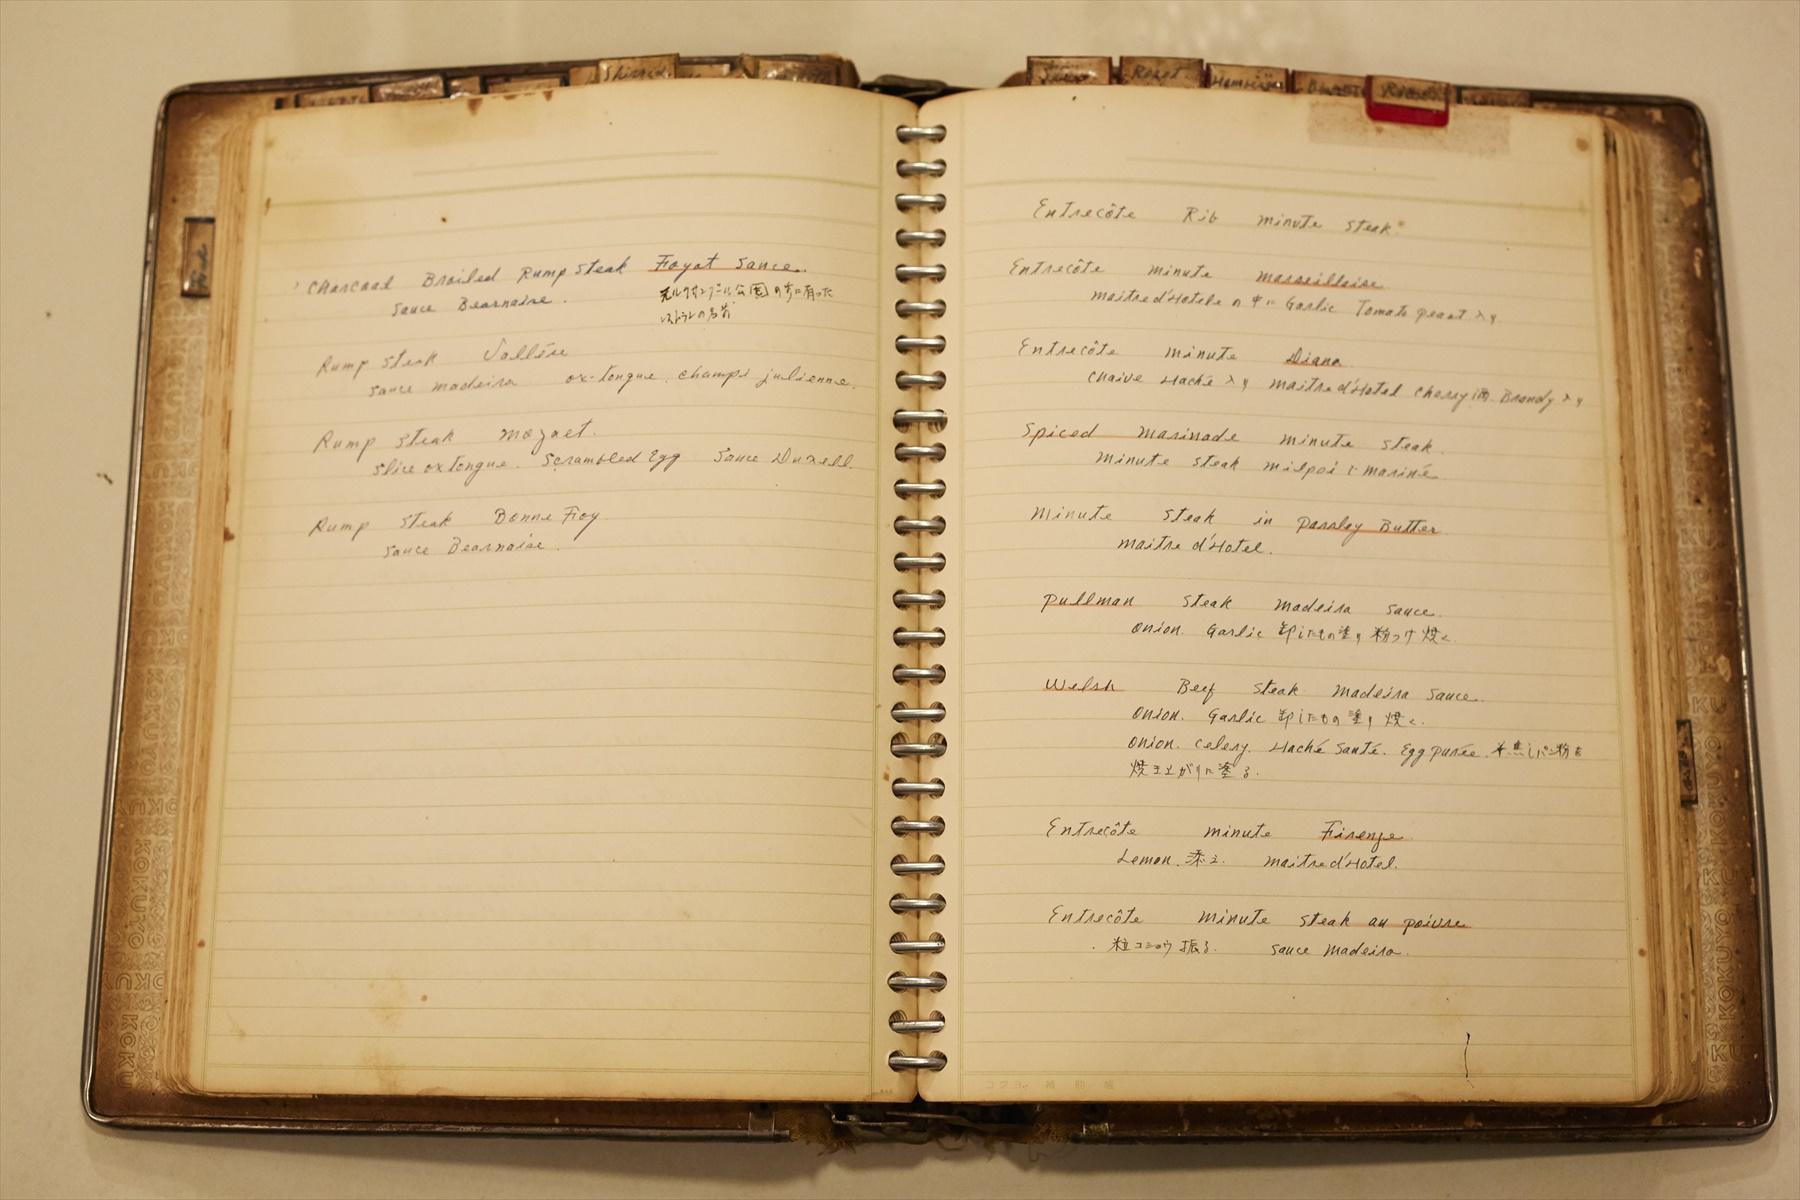 Shirred
Charcoal Broiled Rump Steak Foyot Sauce.
Sauce Bearnaise.
公園の
レストランの名前
Rump Steak Vallée
Sauce madeira ox-tongue. champi julienne.
Rump Steak mozaet.
Slice ox tongue. Scrambled Egg Sauce Duxell.
Rump Steak Bonne Fioy
Sauce Bearnaise.
Roast
Entrecôte Rib minute steak.
Entrecôte minute marseillaise
maitre d'Hotele の中に Garlic Tomato peast 入り
Entrecôte minute Diana
chaive Haché 入り maitre d'Hotel cherry酒 Brandy 入り
Spiced marinade minute steak.
minute steak milpoi に mariné
Minute Steak in parsley Butter
maitre d'Hotel.
Pullman Steak madeira sauce.
onion. Garlic 卸したもの塗り 粉つけ 焼く.
Welsh Beef Steak madeira sauce.
onion. Garlic 卸したもの 塗り 焼く.
onion. celery. Haché Sauté. Egg purée. パン粉を
焼き上がりに塗る.
Entrecôte minute Firenze
Lemon. 添え. maitre d'Hotel.
Entrecôte minute steak au poivre
粒コショウ 振る. sauce madeira.
KOKUYO